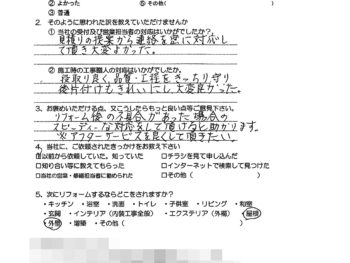 ② よかった ⑤ その他(
③ 普通
2. そのように思われた訳を教えていただけませんか
① 当社の受付及び営業担当者の対応はいかがでしたか。
見積りの提案から連絡を密に対応し
て頂き大変よかった。
② 施工時の工事職人の対応はいかがでしたか。
段取り良く、品質・工程をきっちり守り
後片付けもきれいにし大変良かった。
3. お褒めいただける点、又こうしたらもっと良い点等ご意見下さい。
リフォーム後の不具合があった場合の
スピーディーな対応をして頂けると助かります。
※アフターサービスを良くして頂きたい。
4. 当社に、ご依頼されたきっかけをお教え下さい
☑以前から依頼していた。知っていた □チラシを見て申し込んだ
□知り合い等に教えてもらった □インターネットで検索して見つけた
□当社の営業・修繕担当者に勧められた □その他(
5. 次にリフォームするならどこをされますか?
・キッチン ・浴室 ・洗面 ・トイレ ・子供室 ・リビング ・和室
・玄関 ・インテリア(内装工事全般) ・エクステリア(外構) ・屋根
・外壁 ・増築 ・その他(